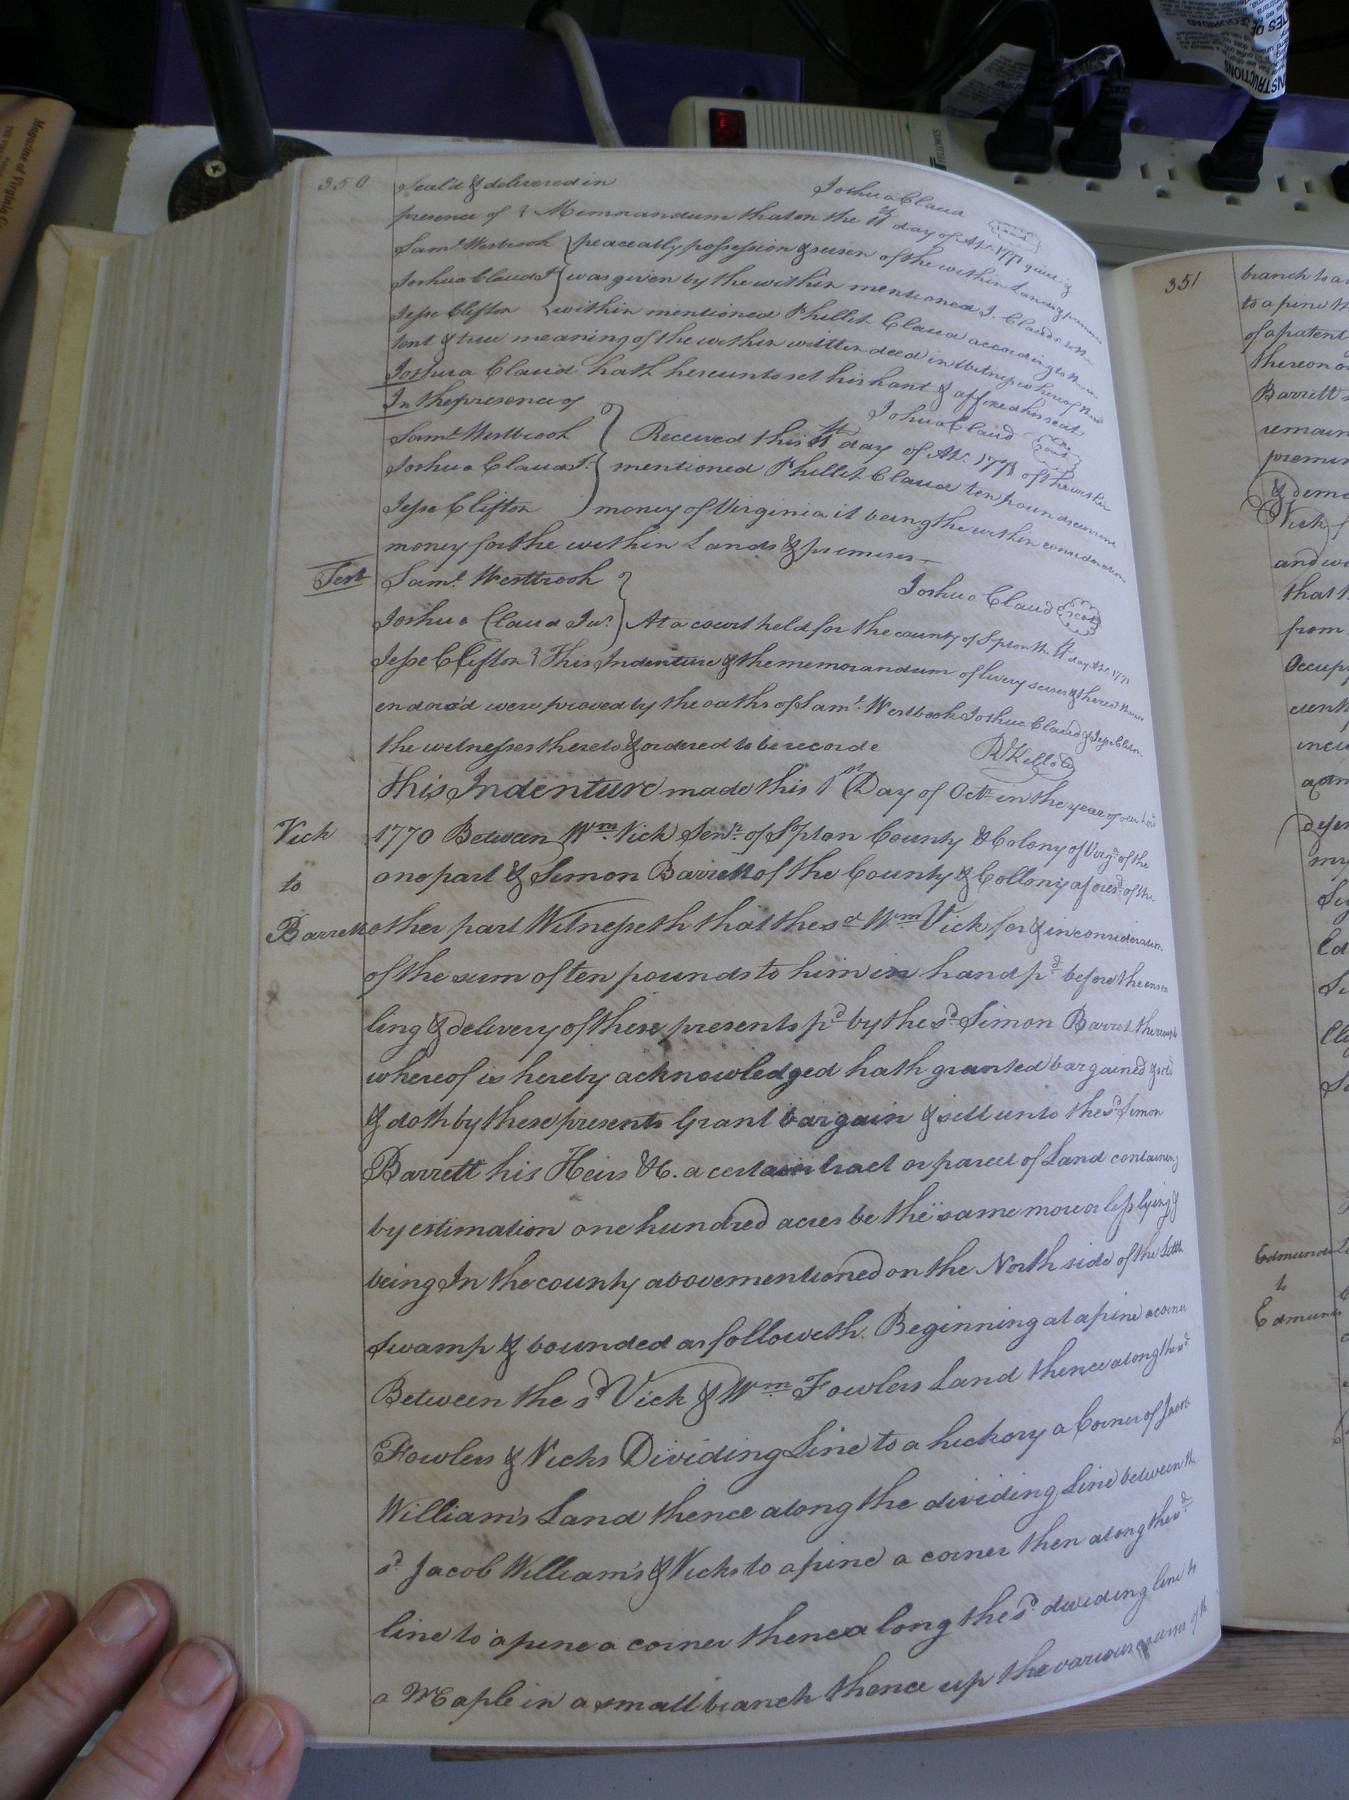 350
Seald & delivered in
Joshua Claud
presence of } Memorandum that on the 11th day of Ap. 1771 quiet &
Sam.l Westbrook
peaceably possession & seisen of the within Land & premises
Joshua Claud Jr
was given by the within mentioned J. Claud to the
Jesse Clifton
within mentioned Phillit Claud according to the in
tent & true meaning of the within written deed in Witness whereof the sd
Joshua Claud hath hereunto set his hant & affixed his seal
In the presence of
Joshua Claud
Seal
Sam.l Westbrook
Received this 11th day of Ap. 1771 of the within
Joshua Claud Jr.
mentioned Phillit Claud ten pounds current
Jesse Clifton
money of Virginia it being the within consideration
money for the within Lands & premises
Test
Sam.l Westbrook
Joshua Claud
Seal
Joshua Claud Jur.
At a court held for the county of Spton the 11 day Ap. 1771
Jesse Clifton } This Indenture & the memorandum of livery seisen & thereon
endors'd were proved by the oaths of Sam.l Westbook Joshua Claud & Jesse Clifton
the witnesses thereto & ordered to be recorde
R Kello
This Indenture made this 1st Day of Oct. in the year of our
Vick
1770 Between Wm. Vick Senr. of Spton County & Colony of Virg.a of the
to
one part & Simon Barrett of the County & Collony afores.d of the
Barrett
other part Witnesseth that the sd Wm Vick for & in consideration
of the sum of ten pounds to him in hand pd before the ensea
ling & delivery of these presents pd by the sd Simon Barrot the receipt
whereof is hereby acknowledged hath granted bargained & sold
& doth by these presents Grant bargain & sell unto the sd Simon
Barrett his Heirs &c. a certain tract or parcel of Land containing
by estimation one hundred acres be the same more or less lying &
being In the county abovementioned on the North side of the Little
Swamp & bounded as followeth. Beginning at a pine a corner
Between the sd Vick & Wm Fowlers Land thence along the sd
Fowlers & Vicks Dividing Line to a hickory a Corner of Jacob
William's Land thence along the dividing Line between the
sd Jacob William's & Vicks to a pine a corner then along the sd
line to a pine a corner thence along the sd dividing line to
a Maple in a small branch thence up the various courses of the
351
branch to a
to a pine th
of a patent
thereon o
Barrett
remain
premi
& deme
Vick
and wi
that
from
Occup
Edmund
to
Edmund
FELLOWES
Magazine of Virginia
INSTRUCTIONS